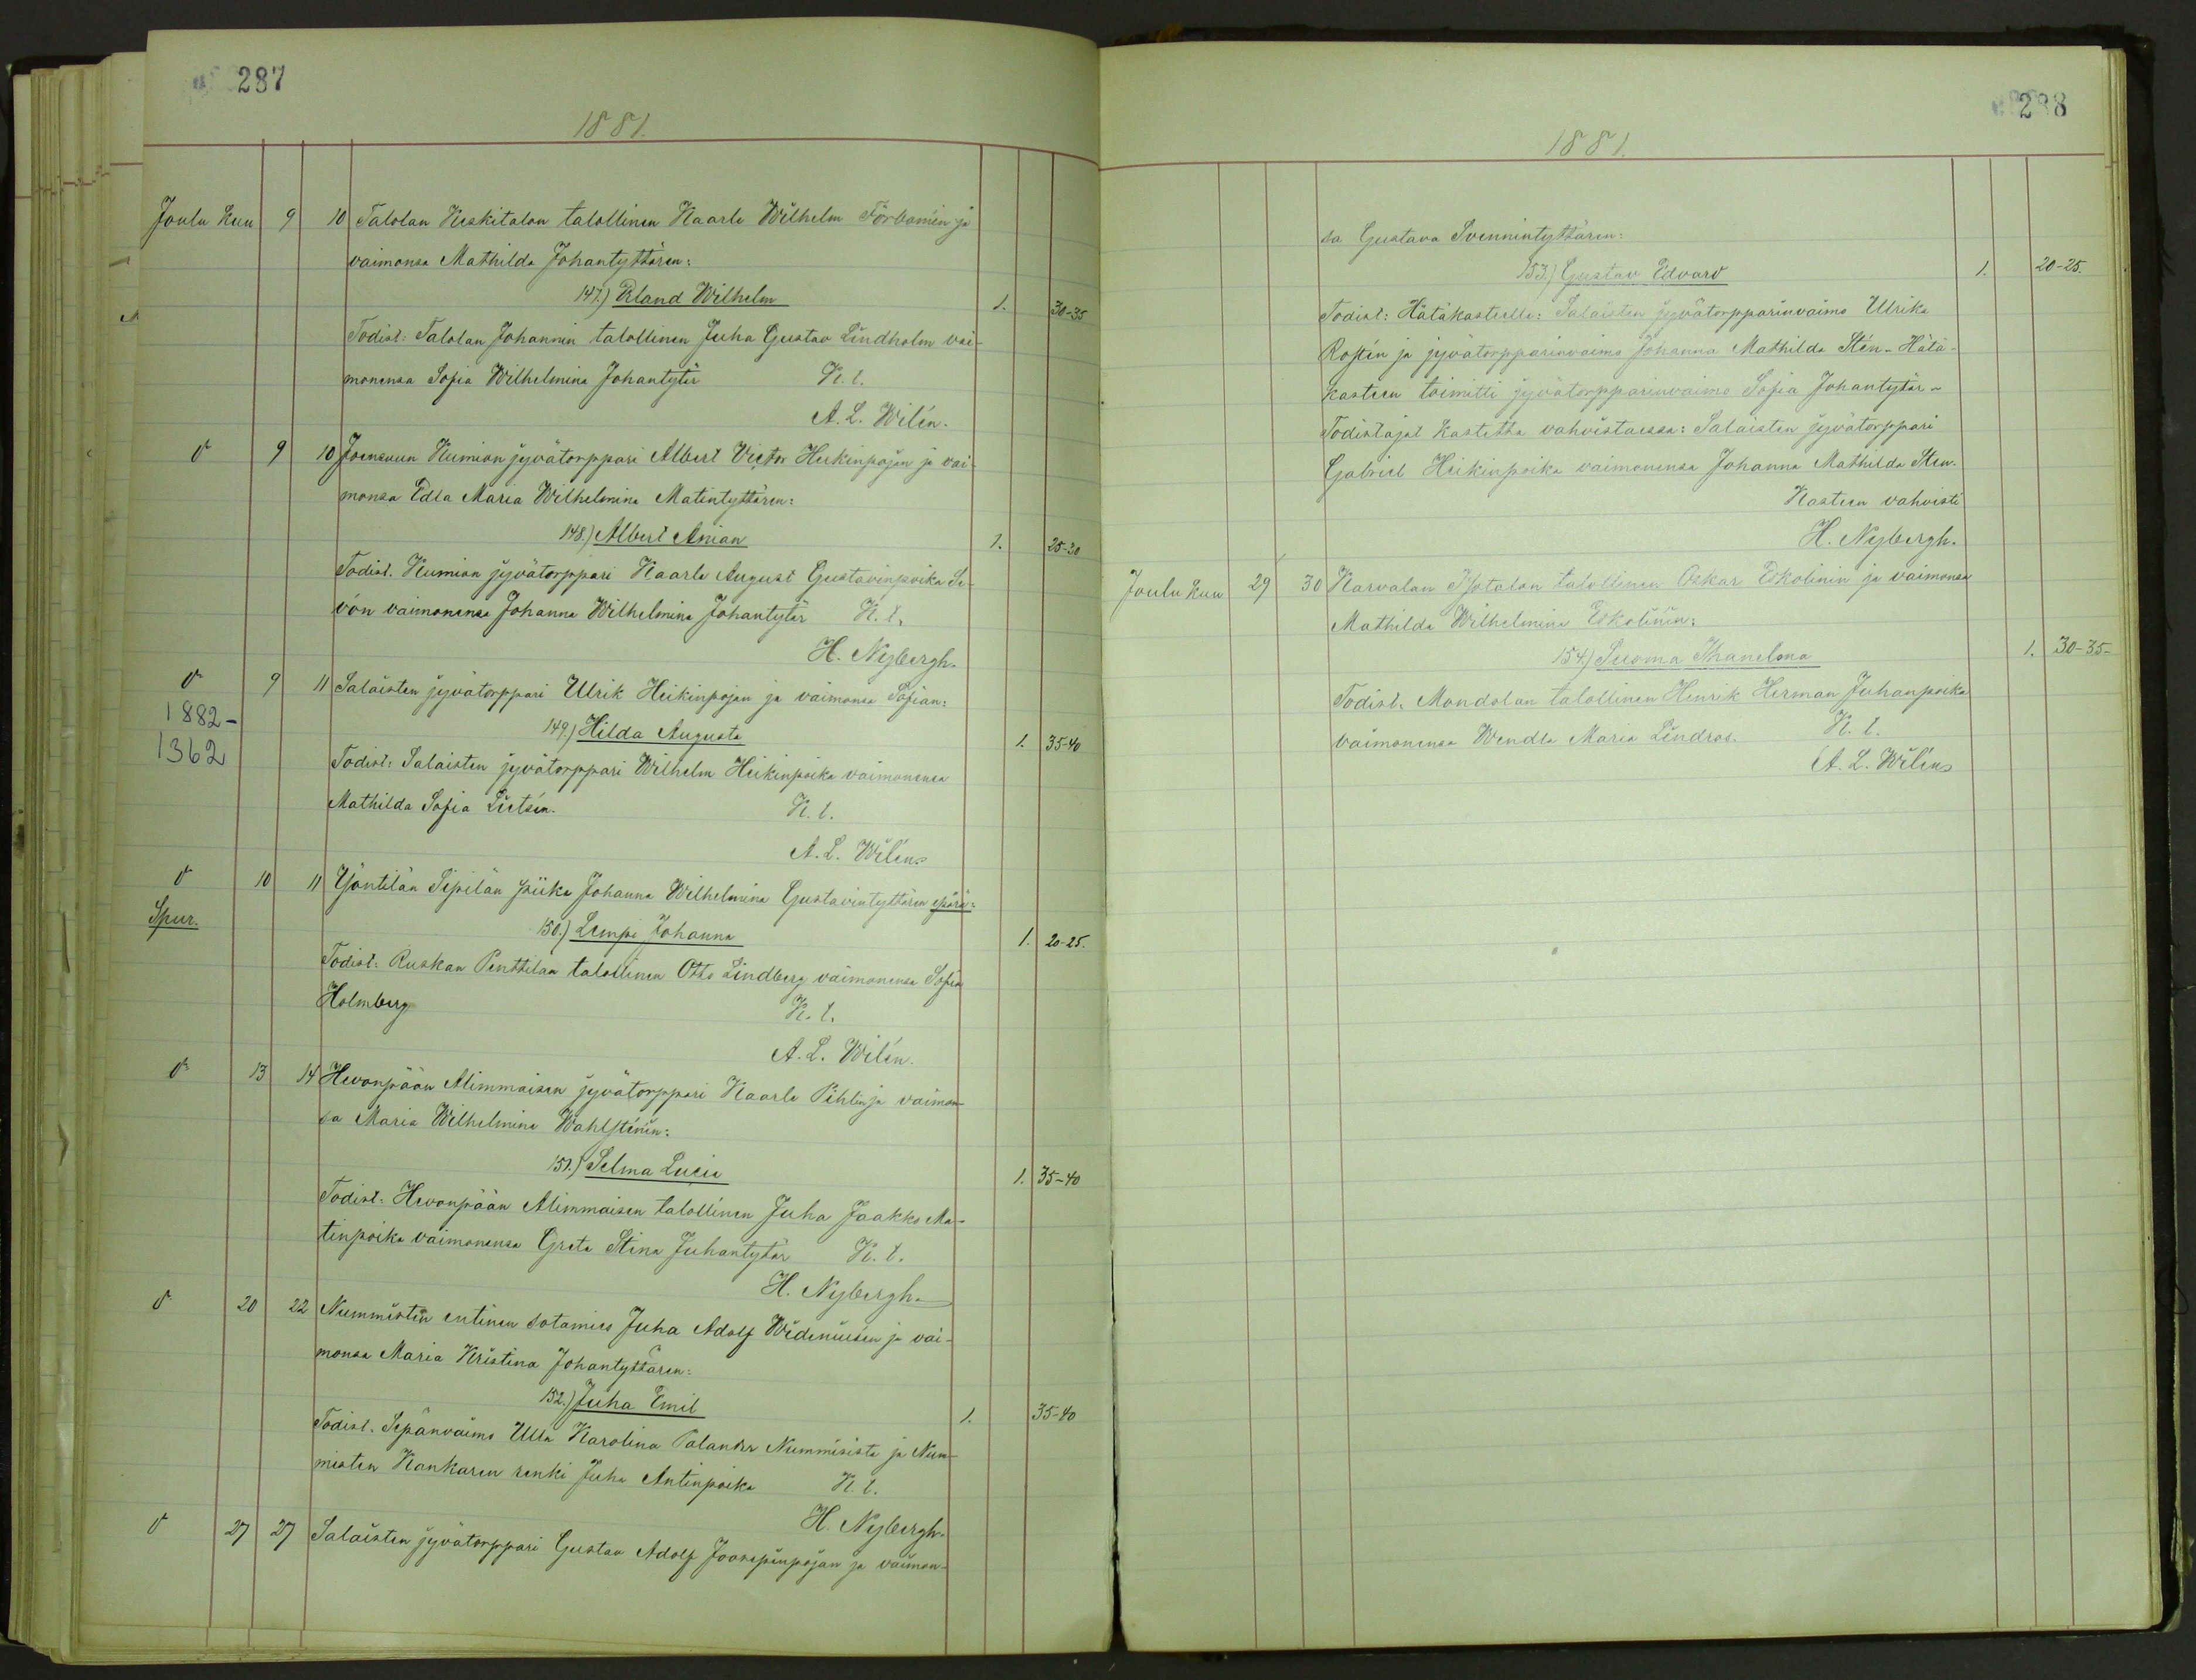 287
1881.
Joulu Kuu 9 10 Talolan Keskitalon talollinen Kaarle Wilhelm Förbomin ja
vaimonsa Mathilda Johantyttären:
147.) Eland Wilhelm 1. 30-35
Todist: Talolan Johannin talollinen Juha Gustav Lindholm vai-
monensa Sofia Wilhelmina Johantytär K. t.
A. L. Wilén.
9 10 Joensuun Kumion jyvätorppari Albert Victor Heikinpojan ja vai-
monsa Edla Maria Wilhelmina Matintyttären:
148.) Albert Anian 1. 25-30
Todist. Kumion jyvätorppari Kaarle August Gustavinpoika Le-
vón vaimonensa Johanna Wilhelmina Johantytär K. t.
H. Nybergh.
9 11 Salaisten jyvätorppari Ulrik Heikinpojan ja vaimonsa Sofian:
1882-
1362
149.) Hilda Augusta 1. 35-40
Todist: Salaisten jyvätorppari Wilhelm Heikinpoika vaimonensa
Mathilda Sofia K. t.
A. L. Wilén
10 11 Yöntilän Sipilän piika Johanna Wilhelmina Gustavintyttären epärä:
Spur.
150.) Lempi Johanna 1. 20-25.
Todist: Ruskan Penttilän talollinen Otto Lindberg vaimonensa Sofia
Holmberg K. t.
A. L. Wilén.
13 14 Hevonpään Alimmaisen jyvätorppari Kaarle Pihlin ja vaimon-
sa Maria Wilhelmina Wahlsténin:
151.) Selma Lucia 1. 35-40
Todist: Hevonpään Alimmaisen talollinen Juha Jaakko Ma-
tinpoika vaimonensa Greta Stina Juhantytär K. t.
H. Nybergh.
20 22 Nummisten entinen sotamies Juha Adolf Wideniusén ja vai-
monsa Maria Kristina Johantyttären:
152.) Juha Emil 1. 35-40
Todist. Sepänvaimo Ulla Karolina Palander Nummisista ja Num-
misten Kankaren renki Juha Antinpoika K. t.
H. Nybergh.
27 27 Salaisten jyvätorppari Gustav Adolf Joosepinpojan ja vaimon-
288
1881.
sa Gustava Svennintyttären:
153.) Gustav Edvard 1. 20-25.
Todist: Hätäkasteelle: Salaisten jyvätorpparinvaimo Ulrika
Rostén ja jyvätorpparinvaimo Johanna Mathilda Stén - Hätä-
kasteen toimitti jyvätorpparinvaimo Sofia Johantytär -
Todistajat Kastetta vahvistaessa: Salaisten jyvätorppari
Gabriel Heikinpoika vaimonensa Johanna Mathilda Sten.
Kasteen vahvisti
H. Nybergh.
Joulu Kuu 29 30 Karvalan Isotalon talollinen Oskar Eskolinin ja vaimonsa
Mathilda Wilhelmina Eskolinin:
154.) Suoma Thanelma 1. 30-35-
Todist. Mondolan talollinen Henrik Herman Juhanpoika
vaimonensa Wendla Maria Lindros. K. t.
A. L. Wilén